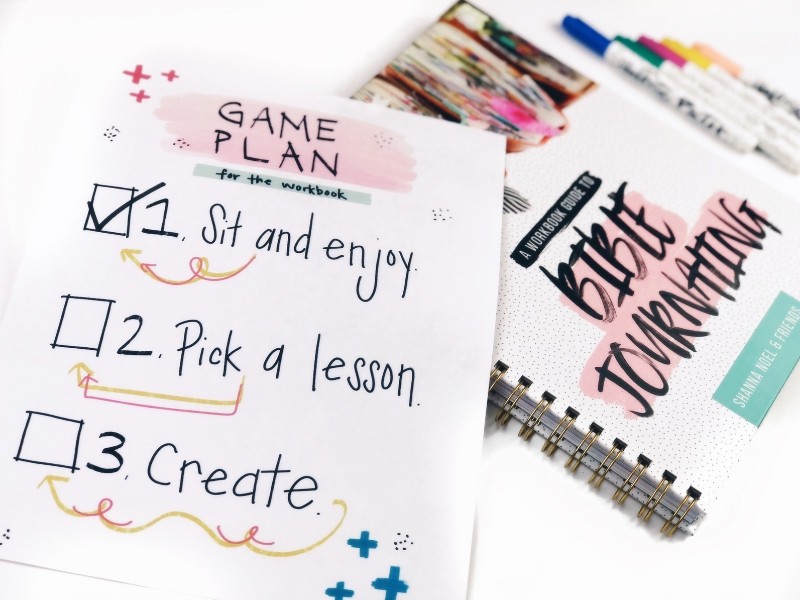 GAME
PLAN
for the workbook
1. Sit and enjoy.
2. Pick a lesson.
3. Create.
A WORKBOOK GUIDE TO
BIBLE
JOURNALING
SHANNA NOEL & FRIENDS